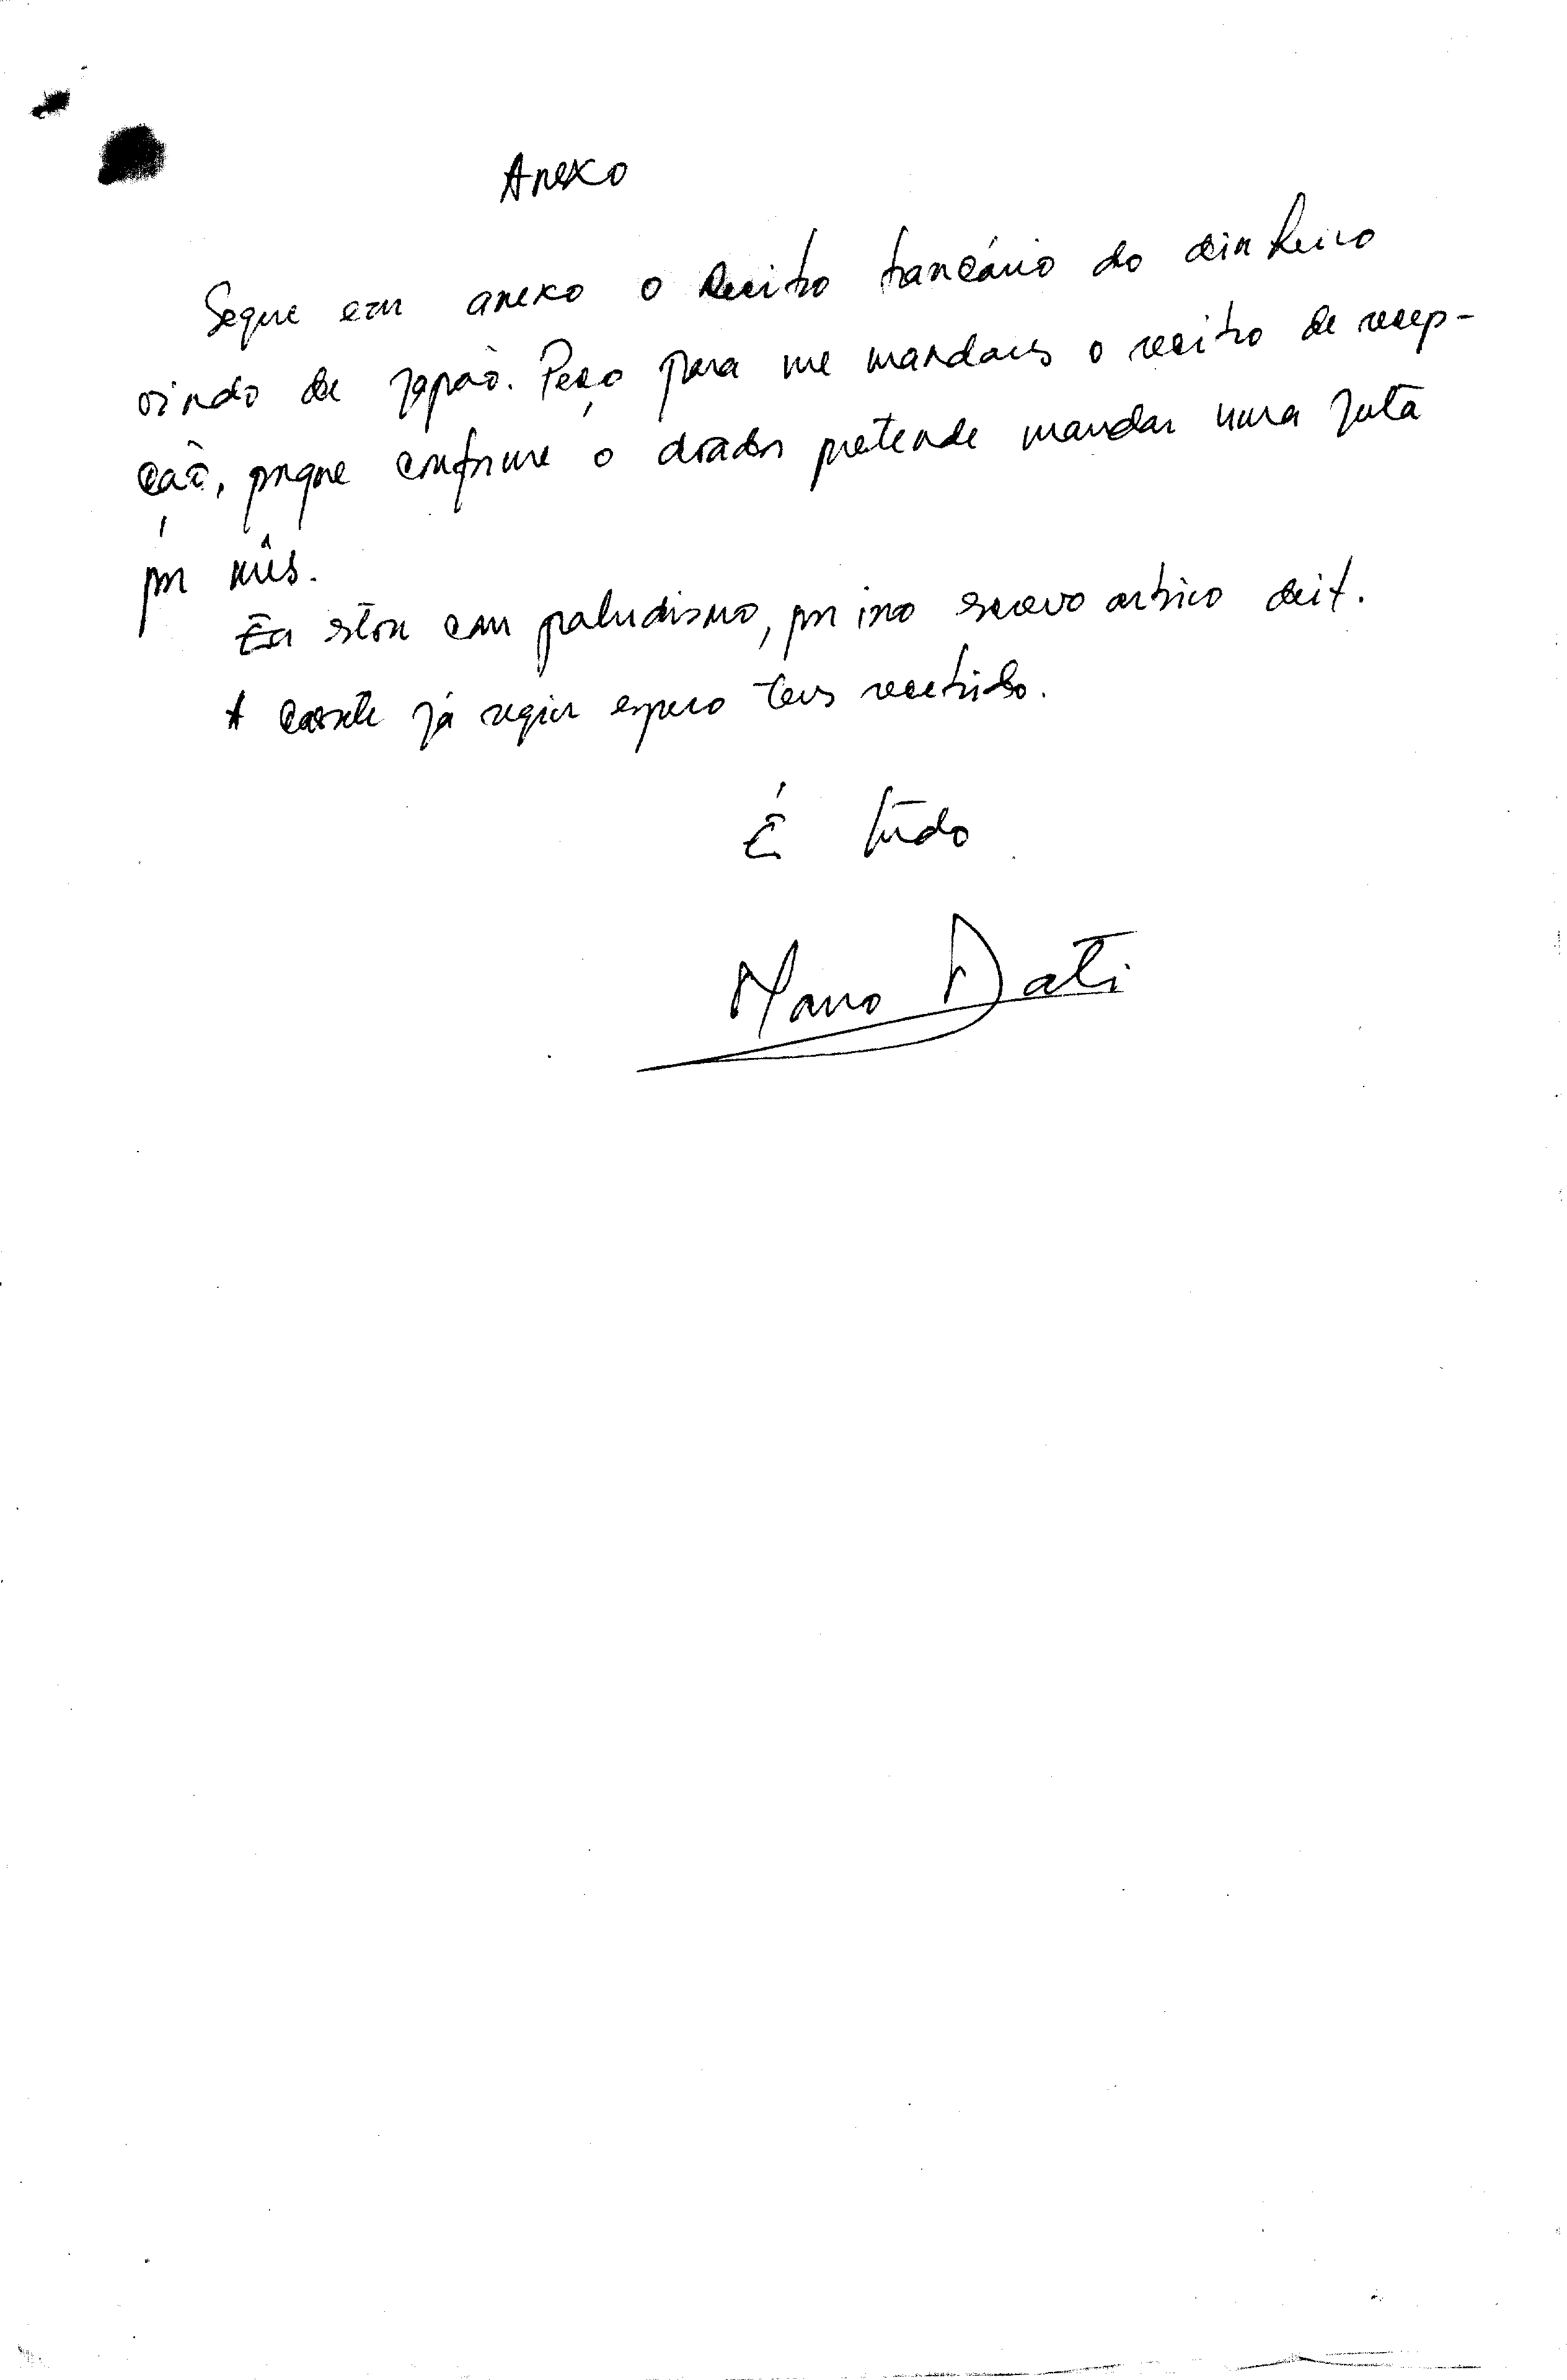 Anexo
Segue em anexo o Recibo bancário do dinheiro
vindo de Japão. Peço para me mandares o recibo de recep-
ção, porque conforme o doador pretende mandar uma Jutã
por mês.
Eu stou com paludismo, por isso screvo ar deit.
A cassete já seguiu espero teres recebido.
É tudo
Mano Dati